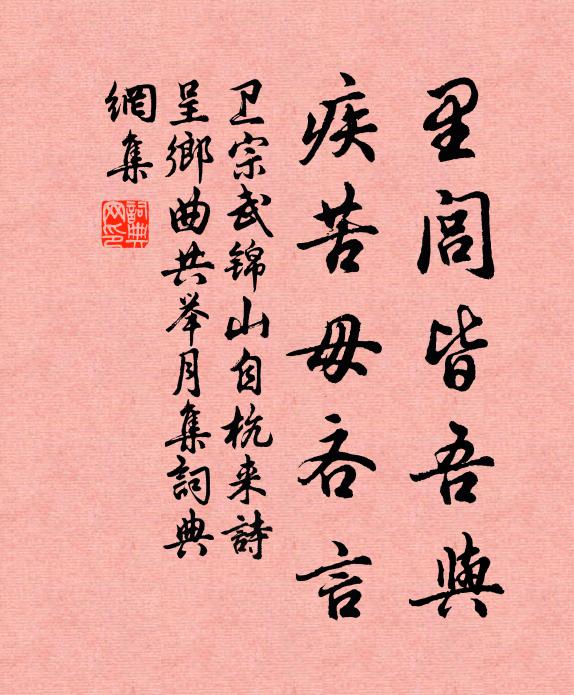 里闾皆吾與
疾苦毋吝言
卫宗武锦山自杭来詩
呈鄉曲共举月集詞典
網集
詞典網印